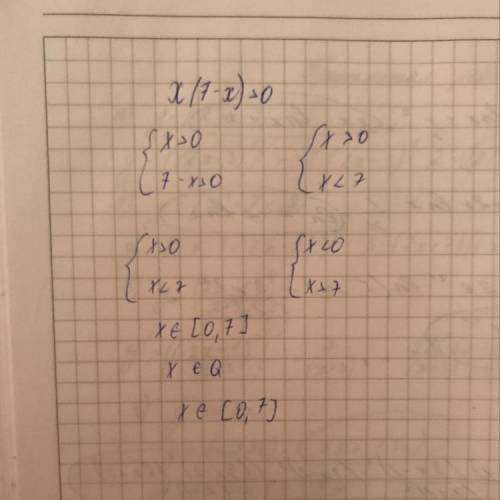 x(7-x)>0
{x>0 {x>0
{7-x>0 {x<7
{x>0 {x<0
{x<7 {x>7
x∈[0,7]
x∈Q
x∈[0,7]